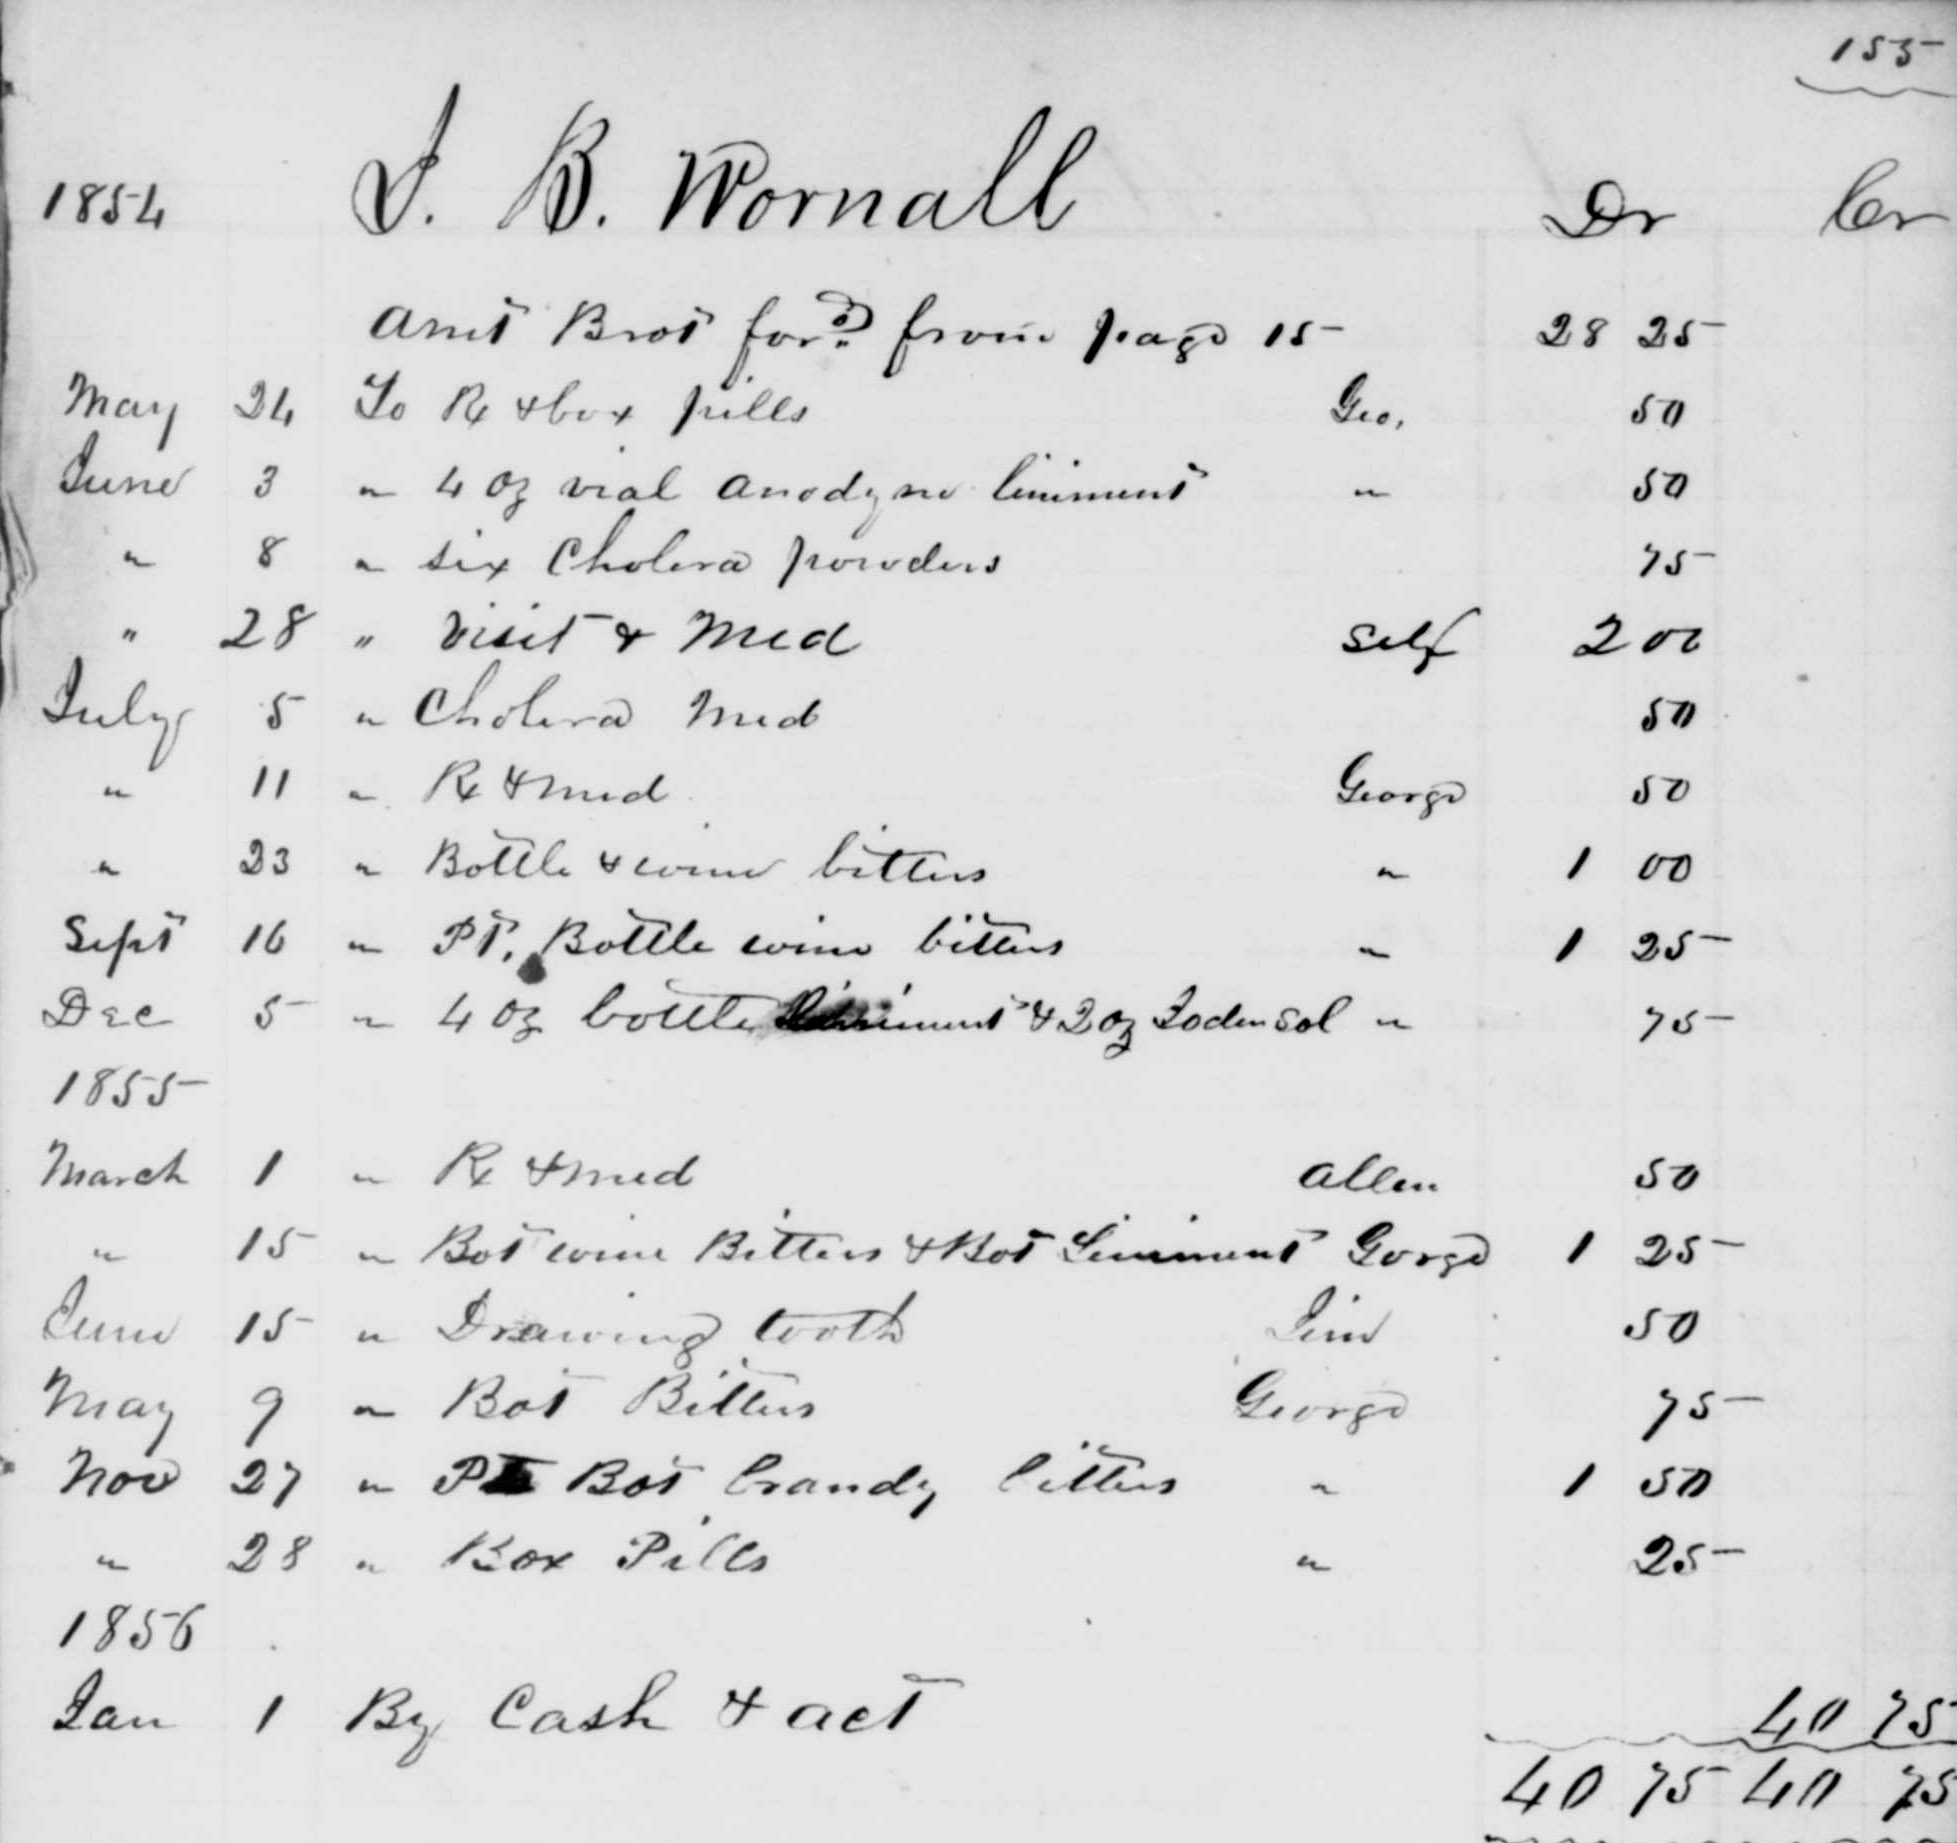 155
1854 J. B. Wornall Dr Cr
Amt Brot ford from page 15 28 25
May 24 To Rx & box pills Geo. 50
June 3 " 4 oz vial anodyne liniment " 50
" 8 " six Cholera powders 75
" 28 " Visit & Med Self 2 00
July 5 " Cholera Med 50
" 11 " Rx & med George 50
" 23 " Bottle & wine bitters " 1 00
Sept 16 " Pt. Bottle wine bitters " 1 25
Dec 5 " 4 oz bottle liniment & 2 oz sol " 75
1855
March 1 " Rx & med Allen 50
" 15 " Bot wine Bitters & Bot Liniment Gorge 1 25
June 15 " Drawing tooth Jim 50
May 9 " Bot Bitters George 75
Nov 27 " Pt Bot brandy bitters " 1 50
" 28 " Box Pills " 25
1856
Jan 1 By Cash & act 40 75
40 75 40 75